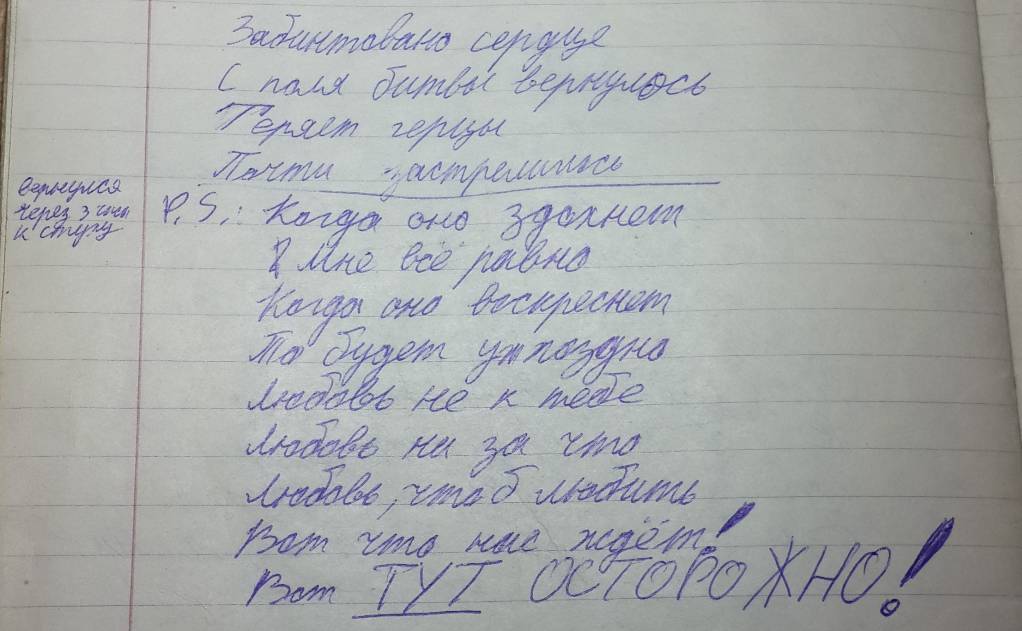 Забинтовано сердце
С поля битвы вернулось
Теряет герцы
Почти застрелилось
вернулся
через 3 часа
к стиху
P.S.: Когда оно здохнет
Мне всё равно
Когда оно воскреснет
То будет уж поздно
Любовь не к тебе
Любовь ни за что
Любовь, что б любить
Вот что нас ждёт!
Вот ТУТ ОСТОРОЖНО!